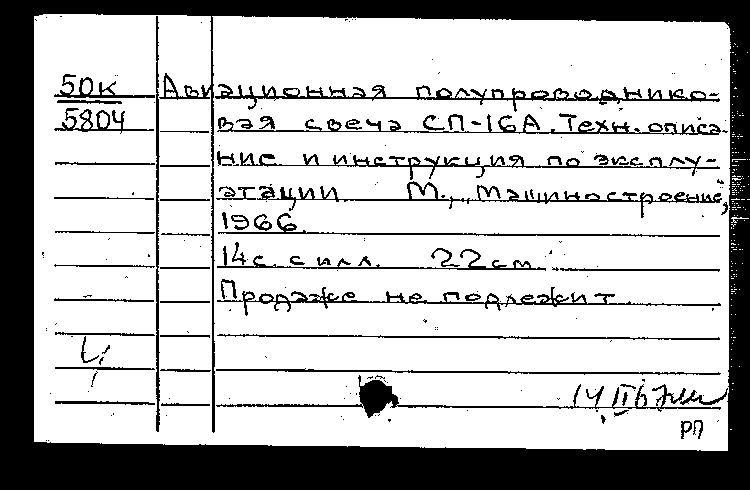 50к
5804
Авиационная полупроводнико-
вая свеча СП-16А. Техн. описа-
ние и инструкция по эксплу-
атации М., „Машиностроение",
1966.
14с. с илл. 22 см
Продаже не подлежит
Ц
14 II 67
РП